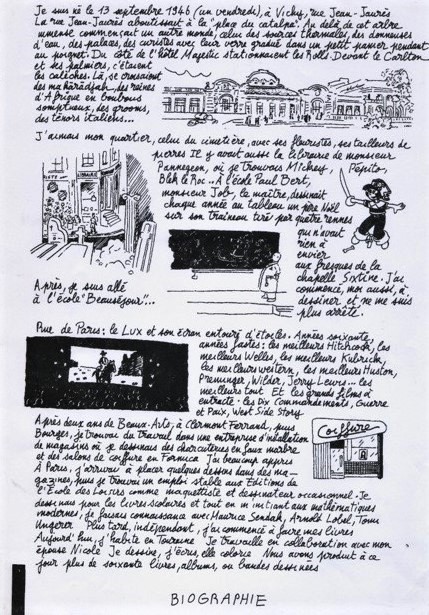 Je suis né le 13 septembre 1946 (un vendredi), à Vichy, rue Jean-Jaurès
La rue Jean-Jaurès aboutissait à la "place du catalpa". Au delà de cet arbre
immense commençait un autre monde, celui des sources thermales, des donneuses
d'eau, des palaces, des curistes avec leur verre gradué dans un petit panier pendant
au poignet. Du côté de l'hôtel Majestic stationnaient les Rolls Devant le Carlton
et ses palmiers, c'étaient
les calèches. Là, se croisaient
des maharadjahs, des reines
d'Afrique en boubous
somptueux, des grooms,
des ténors italiens...
J'aimais mon quartier, celui du cimetière, avec ses fleuristes, ses tailleurs de
pierres Il y avait aussi la librairie de monsieur
Pannegeon, où je trouvais Mickey, Pépito,
Blek le Roc... À l'école Paul Bert,
monsieur Job, le maître, dessinait
chaque année au tableau un père Noël
sur son traîneau tiré par quatre rennes
qui n'avait
rien à
envier
aux fresques de la
chapelle Sixtine. J'ai
commencé, moi aussi, à
dessiner et ne me suis
plus arrêté.
Après, je suis allé
à l'école "Beauséjour"...
Rue de Paris: le Lux et son écran entouré d'étoiles. Années soixante,
années fastes: les meilleurs Hitchcock, les
meilleurs Welles, les meilleurs Kubrick,
les meilleurs western, les meilleurs Huston,
Preminger, Wilder, Jerry Lewis... les
meilleurs tout Et les grands films à
entracte: les Dix Commandements, Guerre
et Paix, West Side Story
Après deux ans de Beaux-Arts, à Clermont Ferrand, puis
Bourges, je trouvai du travail dans une entreprise d'installation
de magasins où je dessinais des charcuteries en faux marbre
et des salons de coiffure en Formica J'ai beaucoup appris
À Paris, j'arrivai à placer quelques dessins dans des ma-
gazines, puis je trouvai un emploi stable aux Éditions de
l'École des Loisirs comme maquettiste et dessinateur occasionnel. Je
dessinais pour les livres scolaires et tout en m'initiant aux mathématiques
modernes, je faisais connaissance avec Maurice Sendak, Arnold Lobel, Tomi
Ungerer Plus tard, indépendant, j'ai commencé à faire mes livres
Aujourd'hui, j'habite en Touraine Je travaille en collaboration avec mon
épouse Nicole Je dessine, j'écris, elle colorie Nous avons produit à ce
jour plus de soixante livres, albums, ou bandes dessinées
Coiffure
BIOGRAPHIE